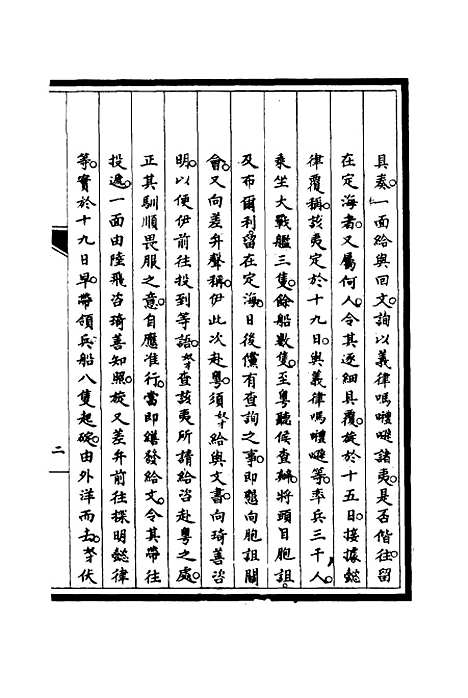 具奏一面給與回文詢以義律嗎𠸄嗹諸夷是否偕往留
在定海者又屬何人令其逐細具覆旋於十五日接據懿
律覆稱該夷定於十九日與義律嗎𠸄嗹等率兵三千人
乘坐大戰艦三隻餘船數隻至粵聽候查辦將頭目胞詛
及布爾利留在定海日後儻有查詢之事即懇向胞詛關
會又向差弁聲稱伊此次赴粵須奴才給與文書向琦善咨
明以便伊前往投到等語奴才查該夷所請給咨赴粵之處
正其馴順畏服之意自應准行當即繕發給文令其帶往
投遞一面由陸飛咨琦善知照旋又差弁前往探明懿律
等實於十九日早帶領兵船八隻起碇由外洋而去奴才伏
二